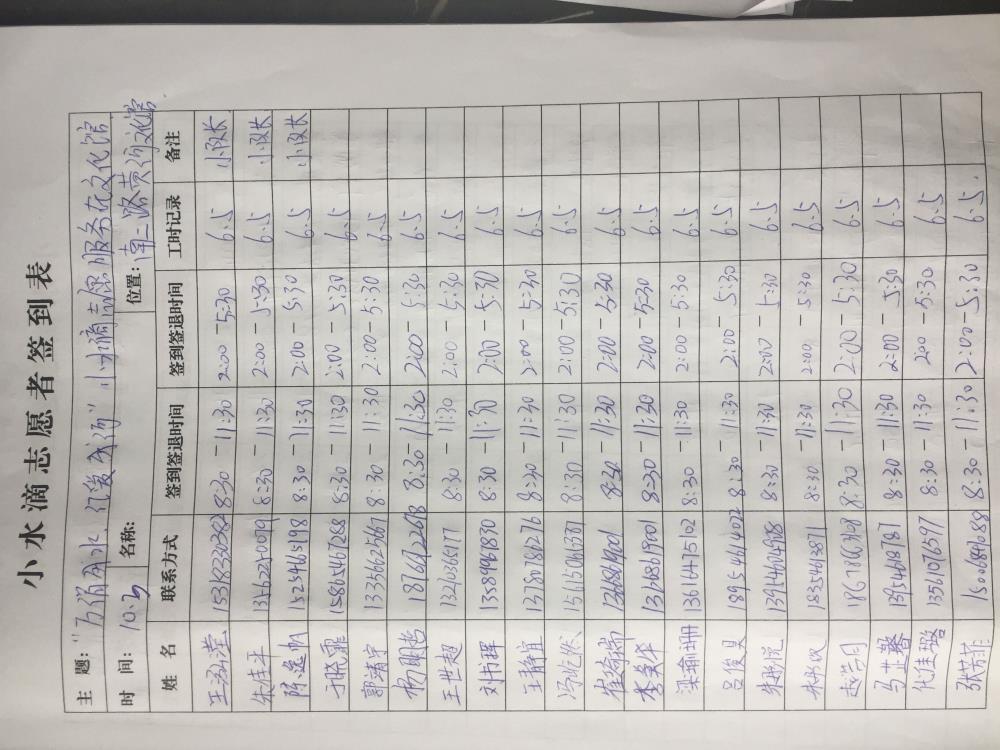 小水滴志愿者签到表
主 题: 小水滴志愿服务在文化馆
时 间: 10.3 名称: 位置: 南二路黄河文化馆
姓 名 联系方式 签到签退时间 签到签退时间 工时记录 备注
8:30-11:30 2:00-5:30 6.5 小队长
朱佳平 8:30-11:30 2:00-5:30 6.5 小队长
8:30-11:30 2:00-5:30 6.5 小队长
于晓霏 15865467288 8:30-11:30 2:00-5:30 6.5
郭靖宇 13356625667 8:30-11:30 2:00-5:30 6.5
杨明哲 18766722678 8:30-11:30 2:00-5:30 6.5
王世超 8:30-11:30 2:00-5:30 6.5
刘书辉 13589961830 8:30-11:30 2:00-5:30 6.5
王静宜 13780786276 8:30-11:30 2:00-5:30 6.5
8:30-11:30 2:00-5:30 6.5
崔绮瑞 13686819001 8:30-11:30 2:00-5:30 6.5
李奕华 13686819001 8:30-11:30 2:00-5:30 6.5
梁瑜珊 13616475102 8:30-11:30 2:00-5:30 6.5
吕俊昊 18954614022 8:30-11:30 2:00-5:30 6.5
8:30-11:30 2:00-5:30 6.5
18354613871 8:30-11:30 2:00-5:30 6.5
赵芸同 8:30-11:30 2:00-5:30 6.5
马芷馨 13954618787 8:30-11:30 2:00-5:30 6.5
代佳璐 13561076597 8:30-11:30 2:00-5:30 6.5
张芳菲 15006840688 8:30-11:30 2:00-5:30 6.5